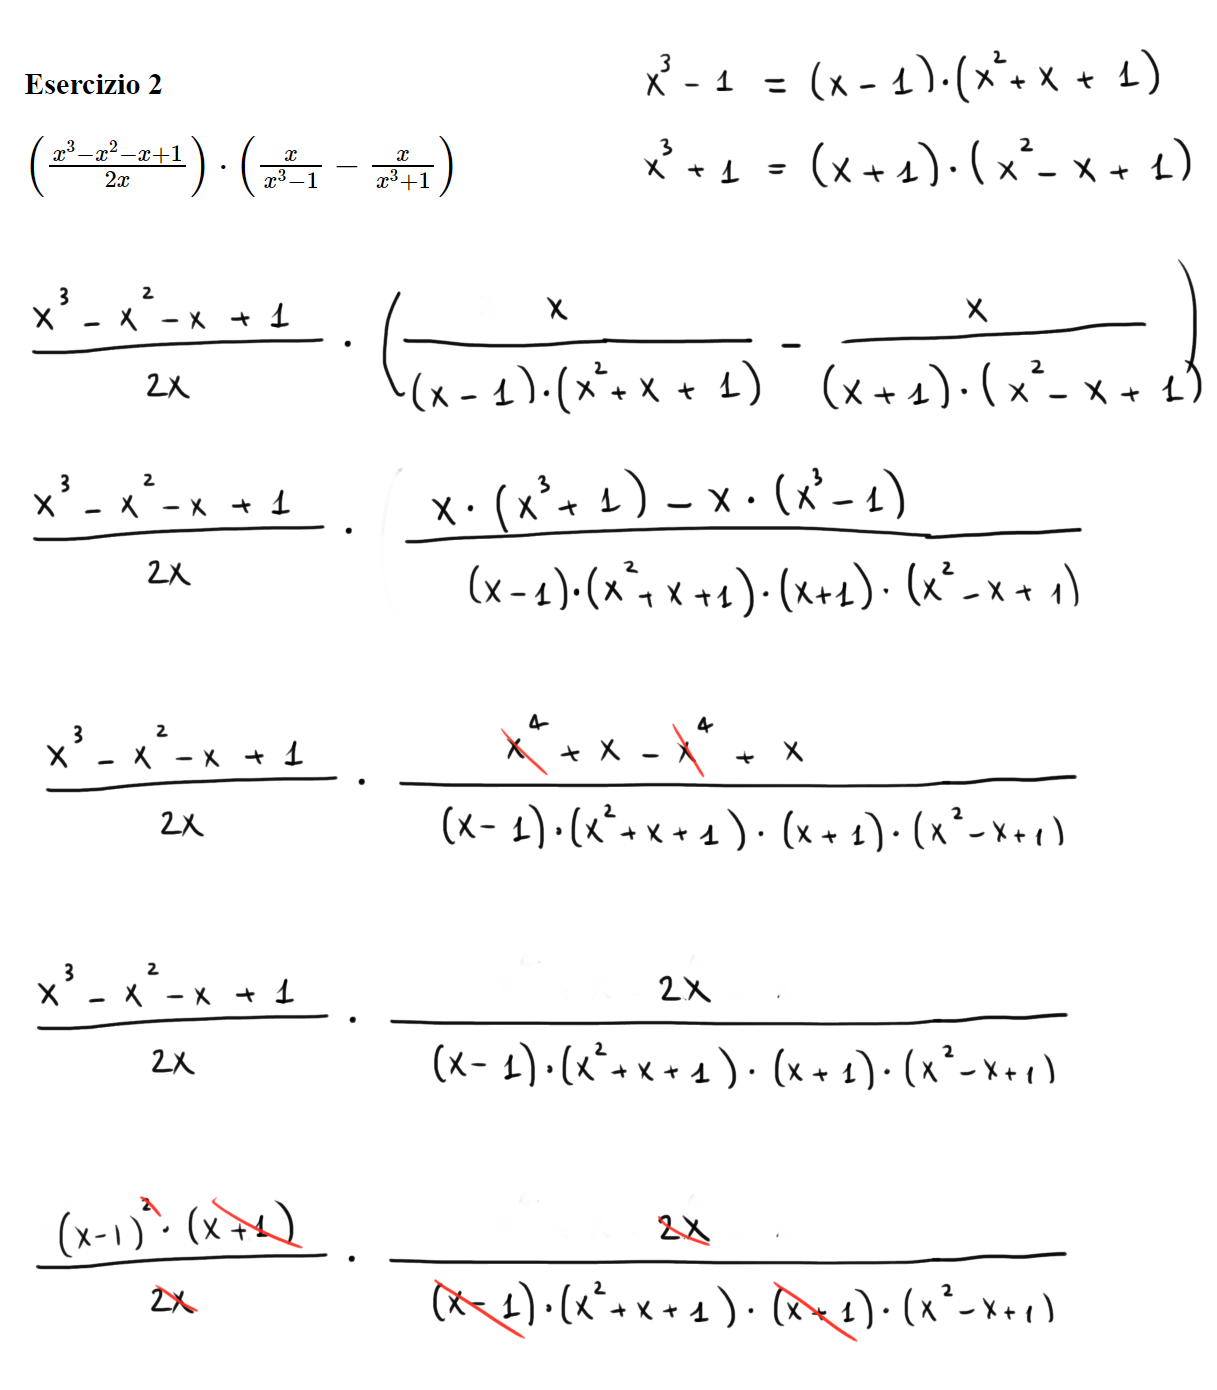 Esercizio 2
x³ - 1 = (x - 1)·(x² + x + 1)
((x³−x²−x+1)/(2x)) · (x/(x³−1) − x/(x³+1))
x³ + 1 = (x + 1)·(x² - x + 1)
(x³ - x² - x + 1)/(2x) · (x/((x - 1)·(x² + x + 1)) - x/((x + 1)·(x² - x + 1)))
(x³ - x² - x + 1)/(2x) · (x·(x³ + 1) - x·(x³ - 1))/((x - 1)·(x² + x + 1)·(x + 1)·(x² - x + 1))
(x³ - x² - x + 1)/(2x) · (x⁴ + x - x⁴ + x)/((x - 1)·(x² + x + 1)·(x + 1)·(x² - x + 1))
(x³ - x² - x + 1)/(2x) · (2x)/((x - 1)·(x² + x + 1)·(x + 1)·(x² - x + 1))
((x - 1)²·(x + 1))/(2x) · (2x)/((x - 1)·(x² + x + 1)·(x + 1)·(x² - x + 1))